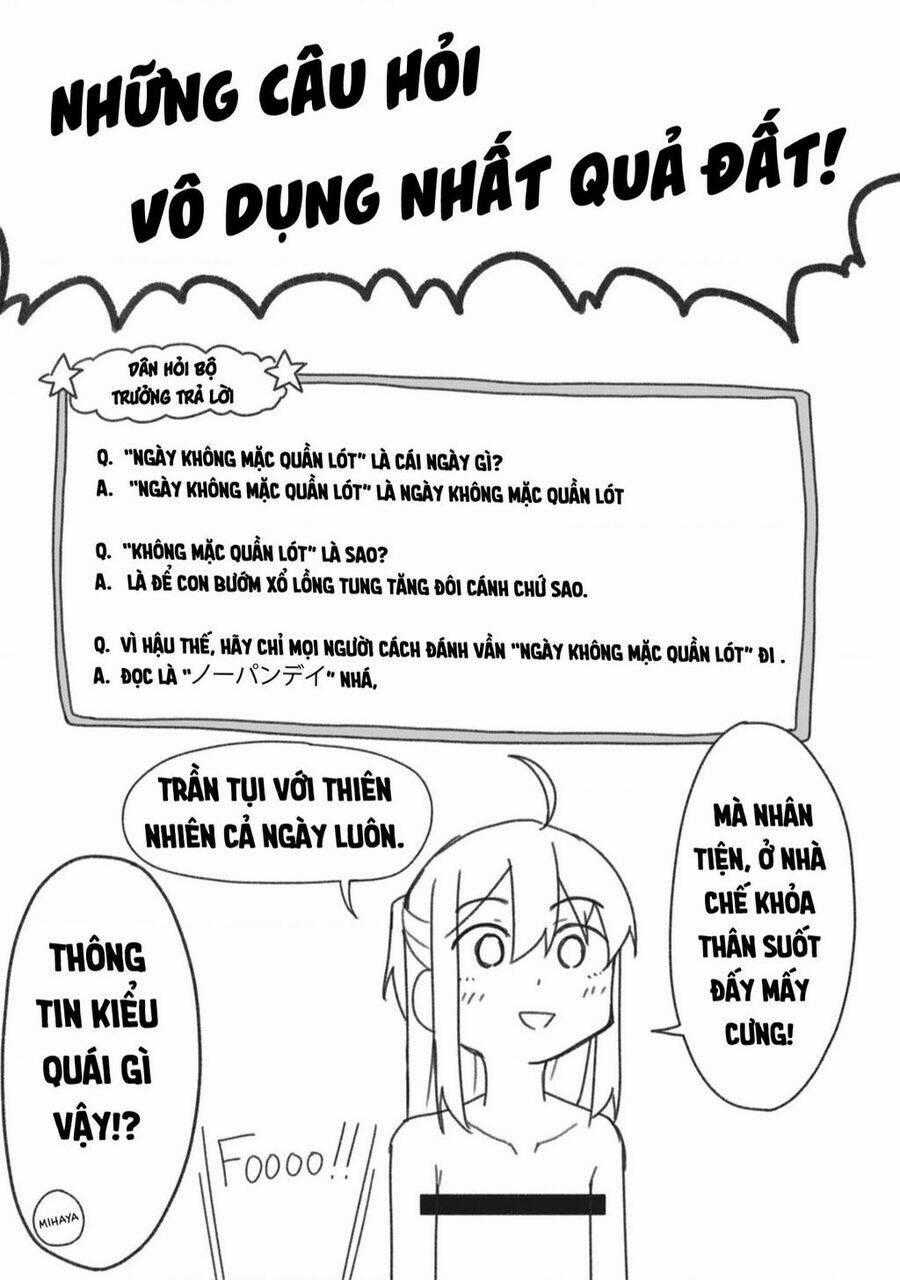 NHỮNG CÂU HỎI
VÔ DỤNG NHẤT QUẢ ĐẤT!
DÂN HỎI BỘ
TRƯỞNG TRẢ LỜI
Q. "NGÀY KHÔNG MẶC QUẦN LÓT" LÀ CÁI NGÀY GÌ?
A. "NGÀY KHÔNG MẶC QUẦN LÓT" LÀ NGÀY KHÔNG MẶC QUẦN LÓT
Q. "KHÔNG MẶC QUẦN LÓT" LÀ SAO?
A. LÀ ĐỂ CON BƯỚM XỔ LỒNG TUNG TĂNG ĐÔI CÁNH CHỨ SAO.
Q. VÌ HẬU THẾ, HÃY CHỈ MỌI NGƯỜI CÁCH ĐÁNH VẦN "NGÀY KHÔNG MẶC QUẦN LÓT" ĐI .
A. ĐỌC LÀ "ノーパンデイ" NHÁ,
MÀ NHÂN
TIỆN, Ở NHÀ
CHẾ KHỎA
THÂN SUỐT
ĐẤY MẤY
CƯNG!
TRẦN TỤI VỚI THIÊN
NHIÊN CẢ NGÀY LUÔN.
THÔNG
TIN KIỂU
QUÁI GÌ
VẬY!?
MIHAYA
FOOOO!!